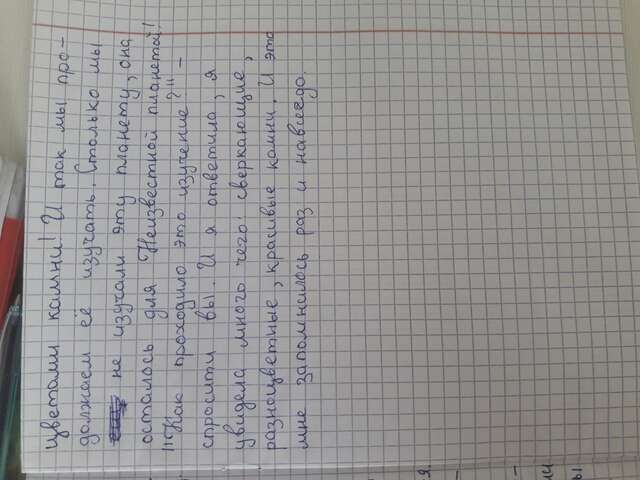 цветами камни! И так мы про-
должаем её изучать. Столько мы
не изучали эту планету, она
осталось для Неизвестной планетой!
"Как проходило это изучение?" –
спросити вы. И я ответила, я
увидела много чего: сверкающие,
разноцветные, красивые камни. И это
мне запомнилось раз и навсегдо.
я
–
–
ии
ы